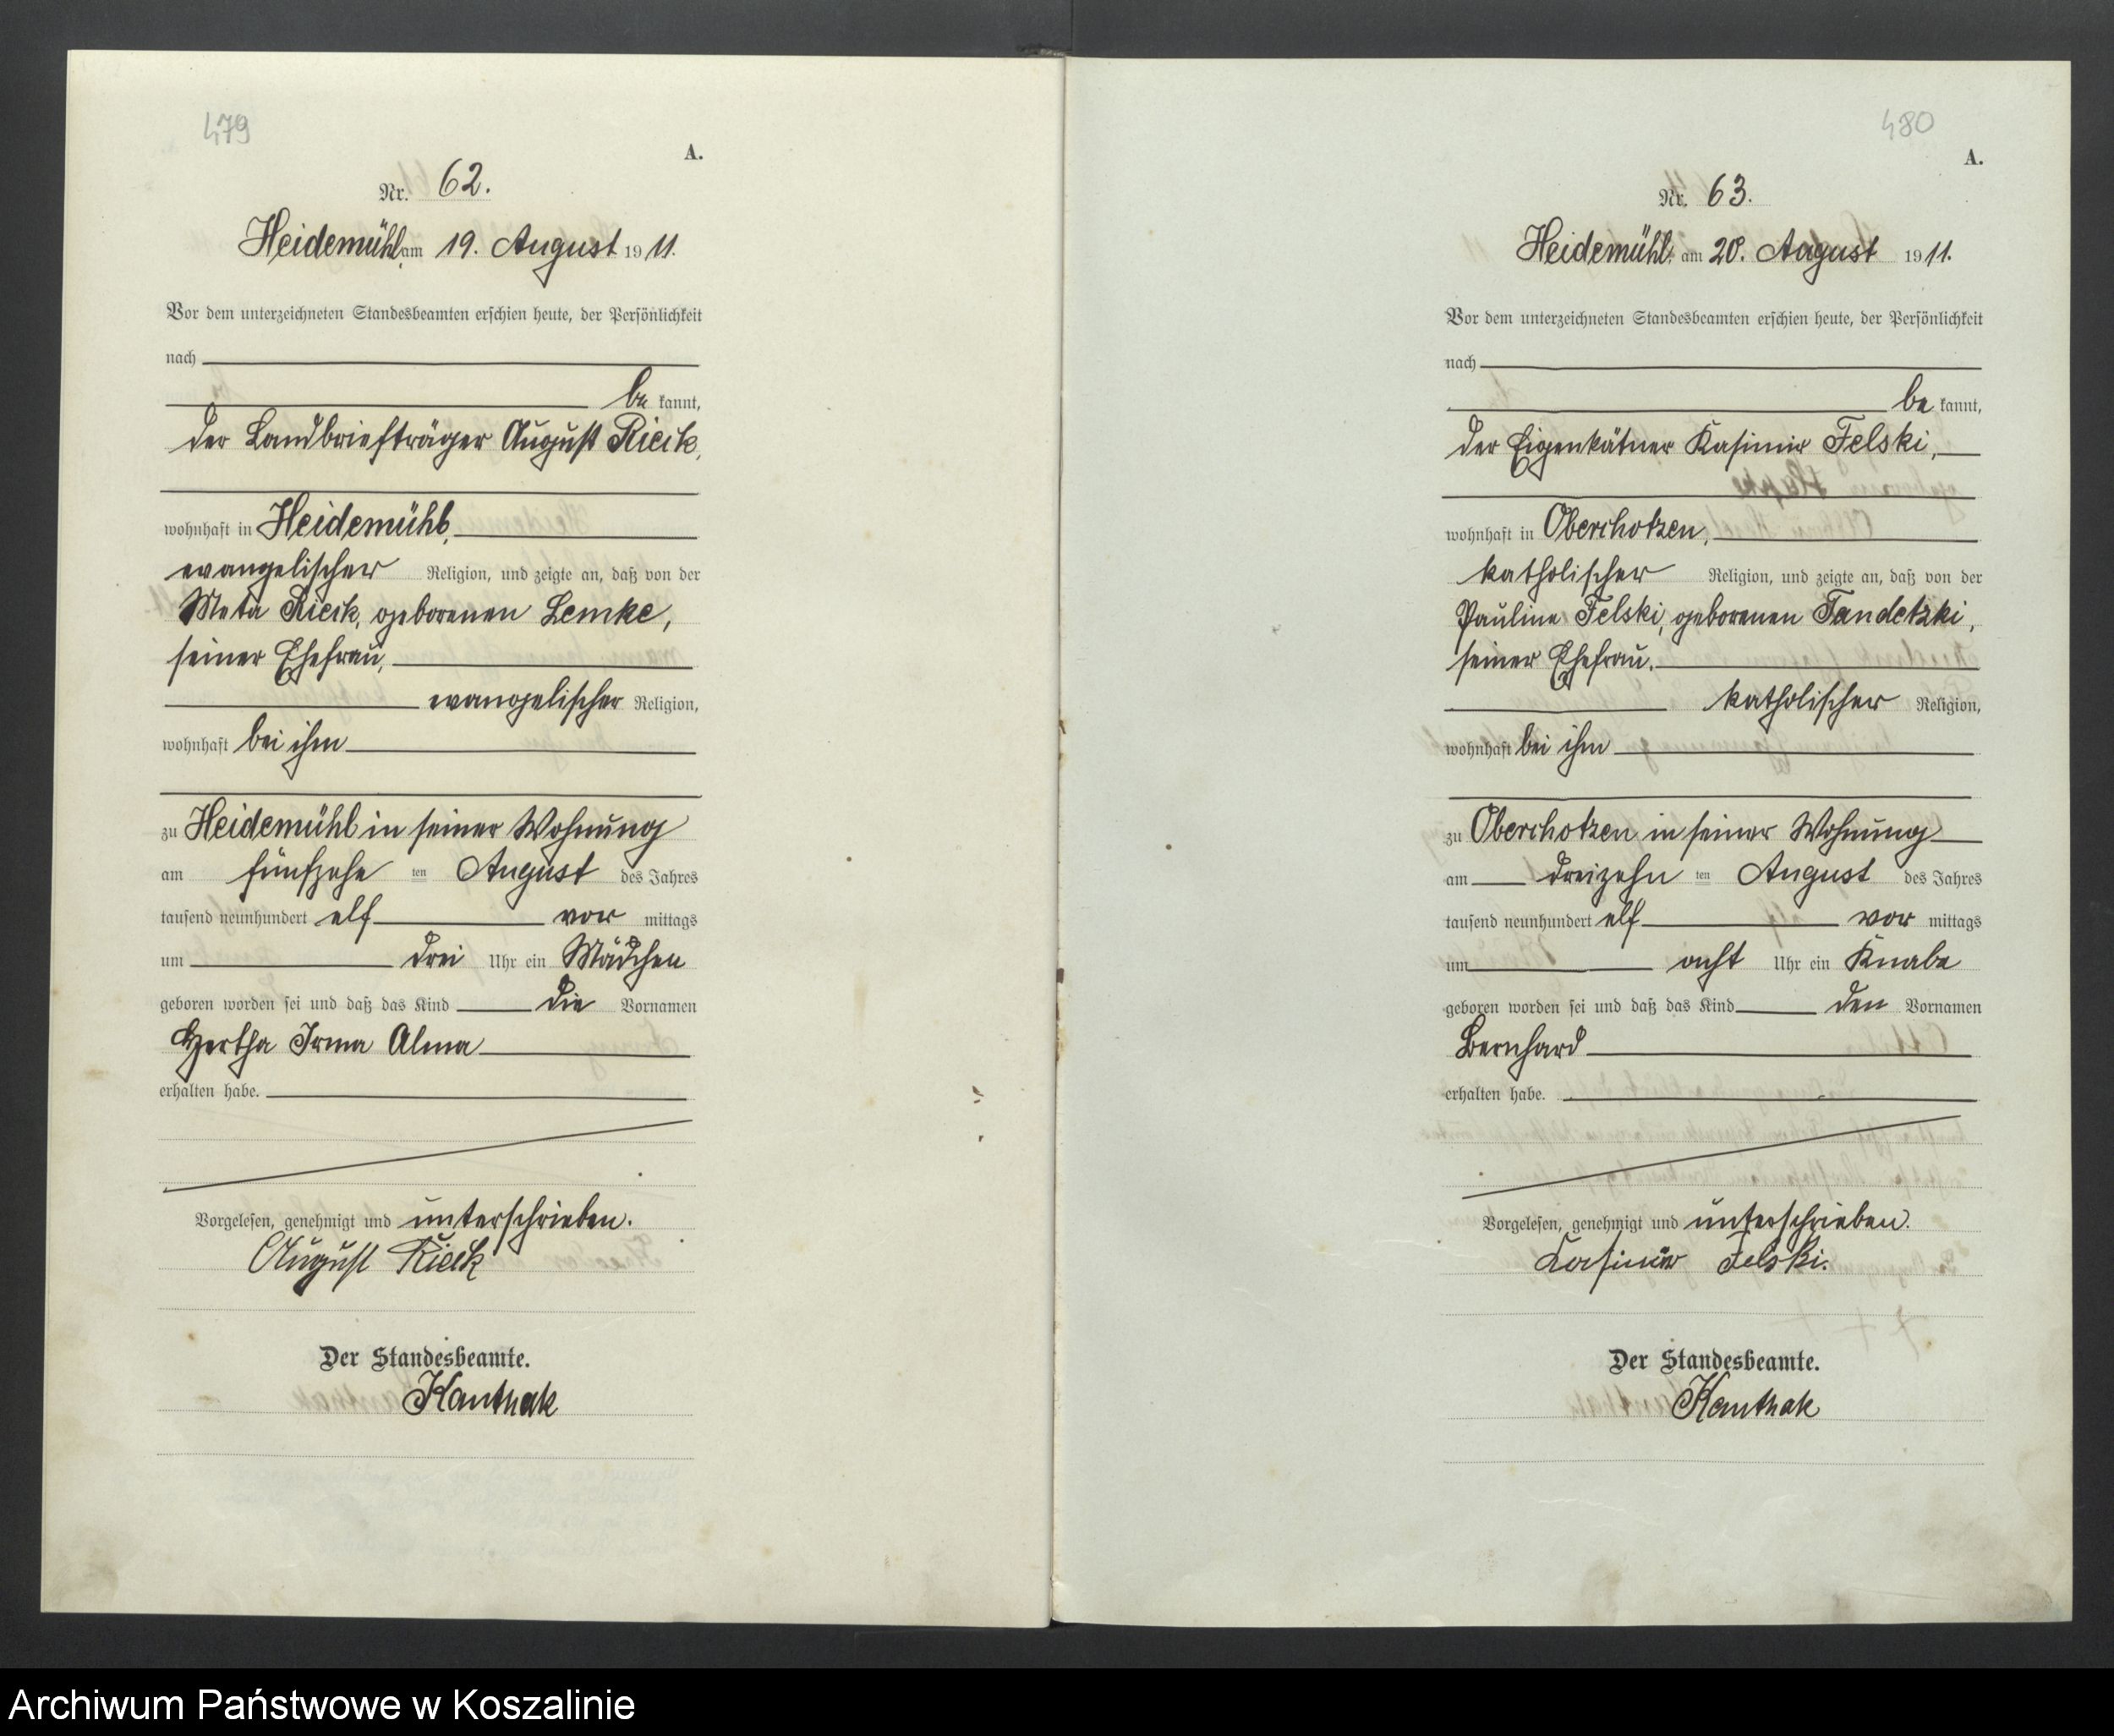 479
A.
Nr. 62.
Heidemühl am 19. August 1911.
Vor dem unterzeichneten Standesbeamten erschien heute, der Persönlichkeit
nach
be kannt,
der Landbriefträger August Rieck,
wohnhaft in Heidemühl,
evangelischer Religion, und zeigte an, daß von der
Meta Rieck, geborenen Lemke,
seiner Ehefrau,
evangelischer Religion,
wohnhaft bei ihm
zu Heidemühl in seiner Wohnung
am fünfzehn ten August des Jahres
tausend neunhundert elf vor mittags
um drei Uhr ein Mädchen
geboren worden sei und daß das Kind die Vornamen
Hertha Irma Alma
erhalten habe.
Vorgelesen, genehmigt und unterschrieben.
August Rieck
Der Standesbeamte.
Kanthak
480
A.
Nr. 63.
Heidemühl, am 20. August 1911.
Vor dem unterzeichneten Standesbeamten erschien heute, der Persönlichkeit
nach
be kannt,
der Eigenkätner Kasimir Felski,
wohnhaft in Oberchotzen,
katholischer Religion, und zeigte an, daß von der
Pauline Felski, geborenen Tandetzki,
seiner Ehefrau.
katholischer Religion,
wohnhaft bei ihm
zu Oberchotzen in seiner Wohnung
am dreizehn ten August des Jahres
tausend neunhundert elf vor mittags
um acht Uhr ein Knabe
geboren worden sei und daß das Kind den Vornamen
Bernhard
erhalten habe.
Vorgelesen, genehmigt und unterschrieben.
Kasimir Felski.
Der Standesbeamte.
Kanthak
Archiwum Państwowe w Koszalinie